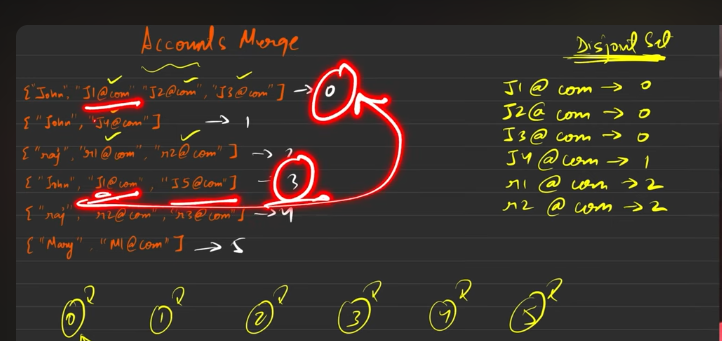 Accounts Merge
Disjoint Set
{"John", "J1@com", "J2@com", "J3@com"] → 0
{"John", "J4@com"] → 1
{"raj", "r1@com", "r2@com"] → 2
{"John", "J1@com", "J5@com"] → 3
{"raj", "r2@com", "r3@com"] → 4
{"Mary", "M1@com"] → 5
J1@com → 0
J2@com → 0
J3@com → 0
J4@com → 1
r1@com → 2
r2@com → 2
0 1 2 3 4 5